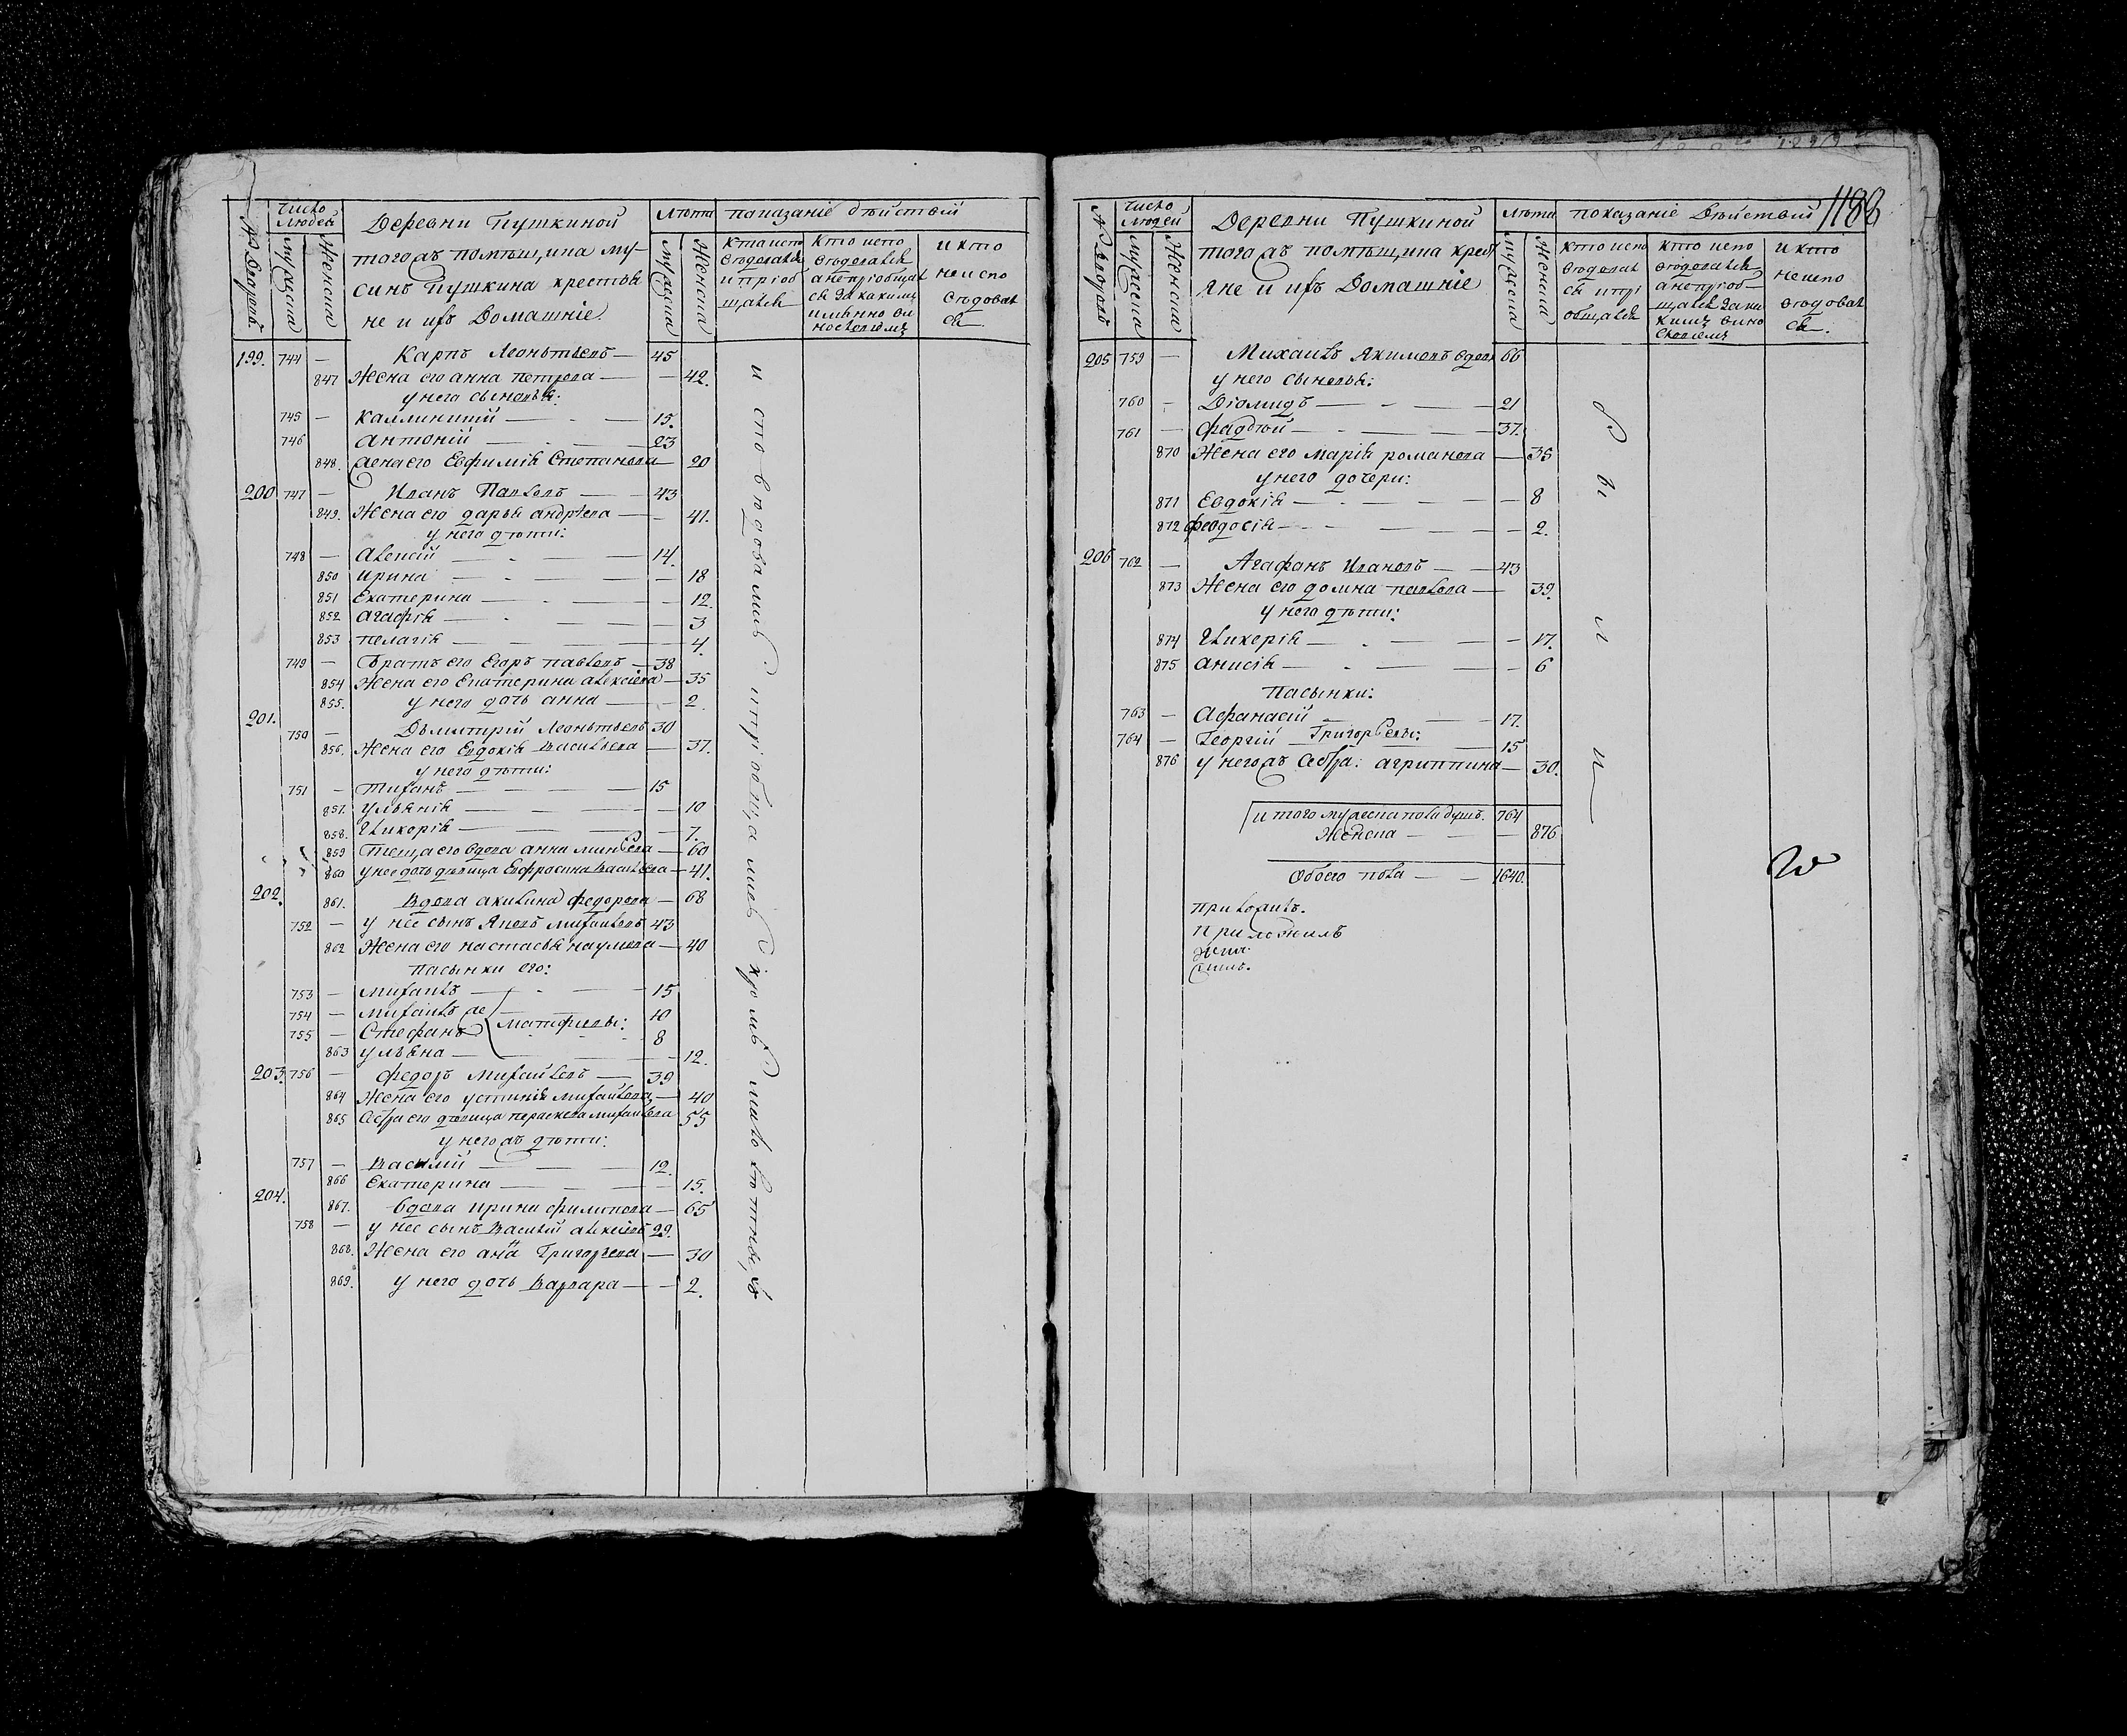 № Дворовъ
Число людей
мужеска
женска
Деревни Пушкиной
тогожъ помѣщика му-
синъ Пушкина крестья
не и ихъ Домашніе.
Лѣта
мужеска
женска
показаніе дѣйствій
кто испо
вѣдовался
и пріоб
щался
кто испо
вѣдовался
а непріобщал
ся за какимъ
имянно ви
нословіемъ
и кто
не испо
вѣдовал
ся
199. 744 — Карпъ Леонтьевъ — 45
847 Жена его анна петрова — 42.
у него сыновья:
745 — Каллиникій — 15.
746 антоній — 23
848. жена его Евфимія Степанова — 20
200 747 — Иванъ Павловъ — 43
849. Жена его дарья андреева — 41.
у него дѣти:
748 — Алексій — 14.
850 ирина — 18
851 Екатерина — 12.
852 агафія — 3
853 пелагія — 4.
749 — Братъ его Егоръ павловъ — 38
854 Жена его Екатерина алексіева — 35
855. у него дочь анна — 2
201. 750 — Дьмитрій Леонтьевъ 30
856. Жена его Евдокія Васильева — 37.
у него дѣти:
751 — тихонъ — 15
857. ульянія — 10
858. Гликерія — 7.
859 теща его вдова анна минѣева — 60
860 у нее дочь дѣвица Евфросина Васильева — 41.
202. 861. Вдова акилина федорова — 68
752 — у нее сынъ Яковъ михайловъ 43
862 Жена его настасья наумова — 40
пасынки его:
753 — михаилъ — 15
754 — михаилъ же — 10
755 — Стефанъ матфіевы: 8
863 ульяна — 12.
203. 756 — федоръ михайловъ — 39
864 Жена его устинія михайлова — 40
865 Сестра его дѣвица параскева михайлова 55
у негожъ дѣти:
757 — Василій — 12.
866 Екатерина — 15.
204. 867. вдова ирина филипова — 65
758 — у нее сынъ Василій алексіевъ 29.
868. Жена его анна Григорьева — 30
869. у него дочь Варвара — 2.
исповѣдовались и пріобщались кромѣ малолѣтныхъ
1188
№ Дворовъ
Число людей
мужеска
женска
Деревни Пушкиной
тогожъ помѣщика крест
яне и ихъ Домашніе
лѣта
мужеска
женска
показаніе Дѣйствій
кто испо
вѣдовал
ся и прі
общался
кто испо
вѣдовался
а непріоб-
щался за ка
кимъ вино
словіемъ
и кто
не испо
вѣдовал
ся.
205 759 — Михаилъ Якимовъ вдовъ 66
у него сыновья:
760 — Діомидъ — 21
761 — фаддѣй — 37.
870 Жена его марія романова — 35
у него дочери:
871 Евдокія — 8
872 феодосія — 2.
206 762 — Агафонъ Ивановъ — 43
873 Жена его домна павлова — 39.
у него дѣти:
874 Гликерія — 17.
875 анисія — 6
Пасынки:
763 — Афанасій — 17.
764 — Георгій Григорьевы: 15
876 у негожъ сестра: агриппина — 30.
были
итого мужеска пола душъ. 764
Женска — 876
Обоего пола — 1640.
приложилъ.
приложилъ